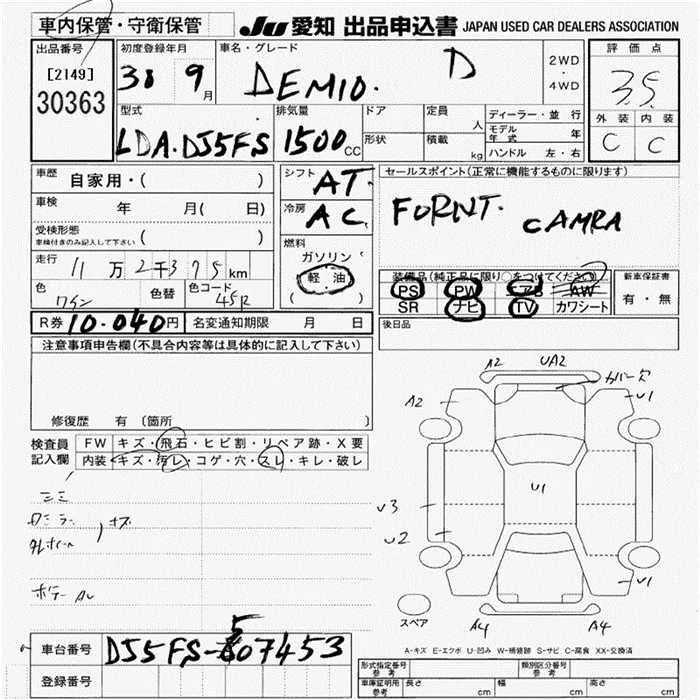 車内保管・守衛保管
JU 愛知 出品申込書 JAPAN USED CAR DEALERS ASSOCIATION
出品番号
[2149]
30363
初度登録年月
30 9月
車名・グレード
DEMIO. D
2WD
・
4WD
評価点
3.5
外装 内装
C C
型式
LDA・DJ5FS
排気量
1500CC
ドア
形状
定員 人
積載 kg
ディーラー・並行
モデル年式 年
ハンドル 左・右
車歴
自家用・( )
車検 年 月( 日)
受検形態
車検付きのみ記入して下さい ( )
走行
11万2千375km
色 色替 色コード
ワイン 45R
シフト AT
冷房 AC
燃料
ガソリン
軽油
( )
セールスポイント(正常に機能するものに限ります)
FORNT. CAMRA
装備品(純正品に限り○をつけてください)
PS PW エアB AW
SR ナビ TV カワシート
新車保証書
有・無
R券 10.040円 名変通知期限 月 日
後日品
注意事項申告欄(不具合内容等は具体的に記入して下さい)
修復歴 有 〔箇所 〕
検査員
記入欄
FW キズ・飛石・ヒビ割・リペア跡・X要
内装 キズ・汚レ・コゲ・穴・スレ・キレ・破レ
キズ
ボデー AU
A2 UA2
カバー欠
A2 U1
U1
U3
U2
U1
A4 A4
スペア
A-キズ E-エクボ U-凹み W-補修跡 S-サビ C-腐食 XX-交換済
車台番号 DJ5FS-507453
登録番号
形式指定番号 参考
類別区分番号 参考
車庫証明用 参考 長さ cm 幅 cm 高さ cm